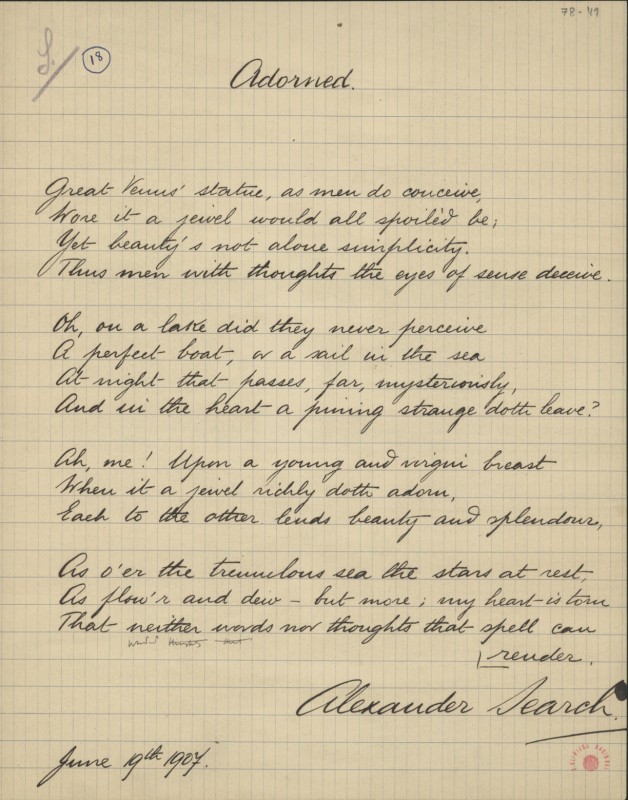 78-49
18
Adorned.
Great Venus' statue, as men do conceive,
Wore it a jewel would all spoiled be;
Yet beauty's not alone simplicity.
Thus men with thoughts the eyes of sense deceive.
Oh, on a lake did they never perceive
A perfect boat, or a sail in the sea
At night that passes, far, mysteriously,
And in the heart a pining strange doth leave?
Ah, me! Upon a young and virgin breast
When it a jewel richly doth adorn,
Each to the other lends beauty and splendour,
As o'er the tremulous sea the stars at rest,
As flow'r and dew – but more; my heart is torn
That neither words nor thoughts that spell can
render.
Alexander Search.
June 19th 1907.